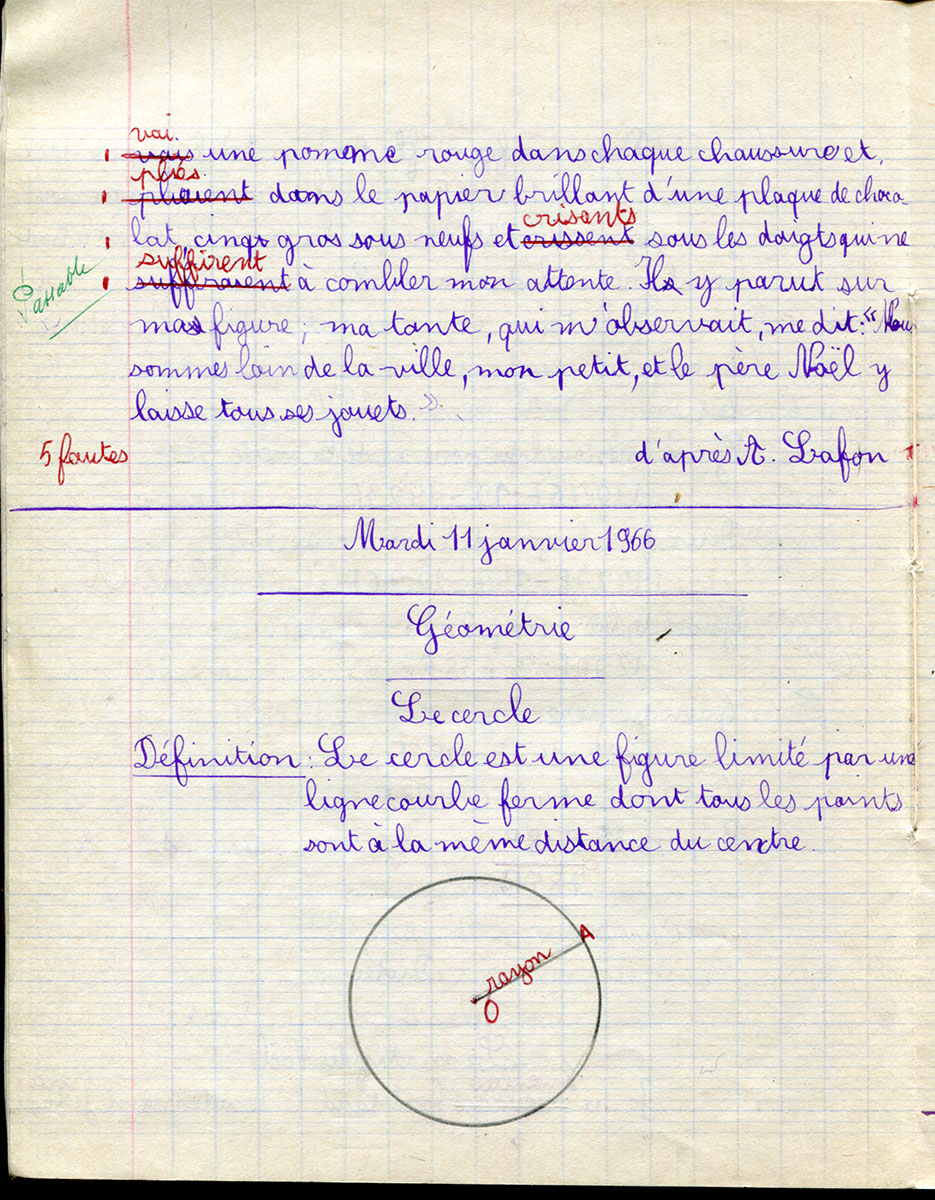 vai.
vais une pomme rouge dans chaque chaussure et,
pliés.
pliaient dans le papier brillant d'une plaque de choco-
crisants
lat, cinq gros sous neufs et crissent sous les doigts qui ne
suffirent
suffiraient à combler mon attente. Il y parut sur
Passable
ma figure ; ma tante, qui m'observait, me dit : "Nous
sommes loin de la ville, mon petit, et le père Noël y
laisse tous ses jouets."
5 fautes
d'après A. Lafon
Mardi 11 janvier 1966
Géométrie
Le cercle
Définition : Le cercle est une figure limité par une
ligne courbe ferme dont tous les points
sont à la même distance du centre.
A
rayon
O